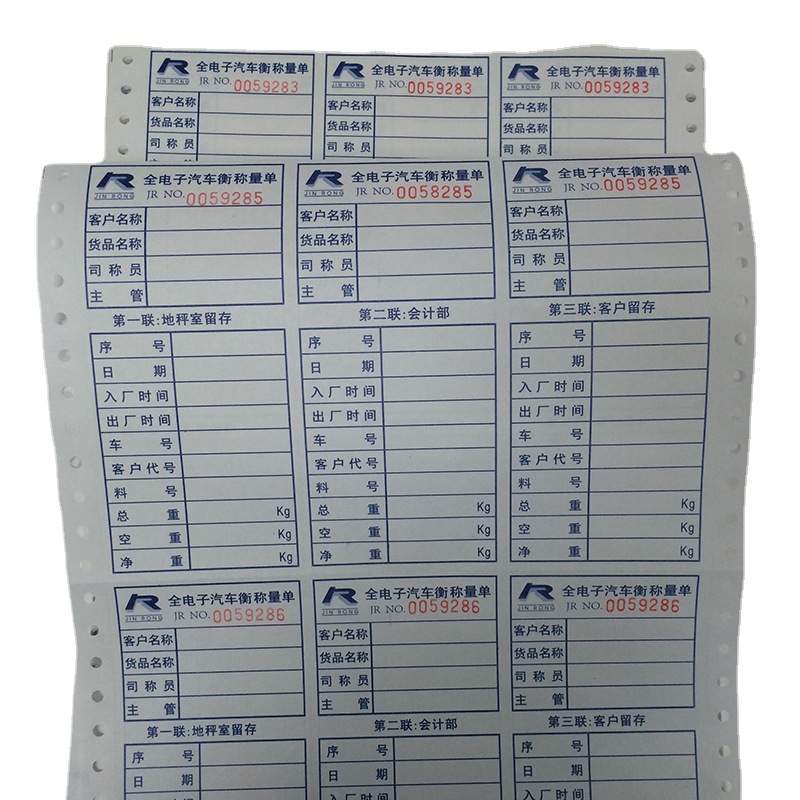 全电子汽车衡称量单 全电子汽车衡称量单 全电子汽车衡称量单
JIN RONG JR NO.0059283 JIN RONG JR NO.0059283 JIN RONG JR NO.0059283
客户名称 客户名称 客户名称
货品名称 货品名称 货品名称
司称员 司称员 司称员
全电子汽车衡称量单 全电子汽车衡称量单 全电子汽车衡称量单
JIN RONG JR NO.0059285 JIN RONG JR NO.0058285 JIN RONG JR NO.0059285
客户名称 客户名称 客户名称
货品名称 货品名称 货品名称
司称员 司称员 司称员
主管 主管 主管
第一联:地秤室留存 第二联:会计部 第三联:客户留存
序号 序号 序号
日期 日期 日期
入厂时间 入厂时间 入厂时间
出厂时间 出厂时间 出厂时间
车号 车号 车号
客户代号 客户代号 客户代号
料号 料号 料号
总重 Kg 总重 Kg 总重 Kg
空重 Kg 空重 Kg 空重 Kg
净重 Kg 净重 Kg 净重 Kg
全电子汽车衡称量单 全电子汽车衡称量单 全电子汽车衡称量单
JIN RONG JR NO.0059286 JIN RONG JR NO.0059286 JIN RONG JR NO.0059286
客户名称 客户名称 客户名称
货品名称 货品名称 货品名称
司称员 司称员 司称员
主管 主管 主管
第一联:地秤室留存 第二联:会计部 第三联:客户留存
序号 序号 序号
日期 日期 日期
入厂时间 入厂时间 入厂时间